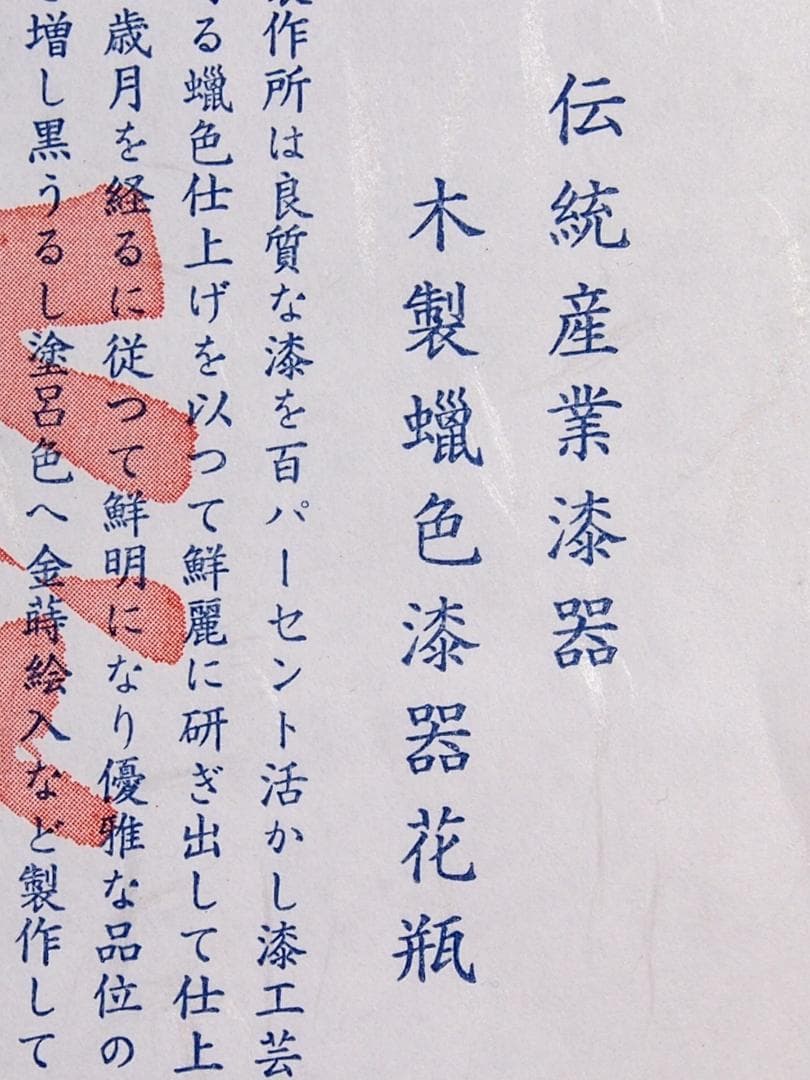 伝統産業漆器
木製蠟色漆器花瓶
作所は良質な漆を百パーセント活かし漆工芸
る蠟色仕上げを以つて鮮麗に研ぎ出して仕上
歳月を経るに従つて鮮明になり優雅な品位の
増し黒うるし塗呂色へ金蒔絵入など製作して